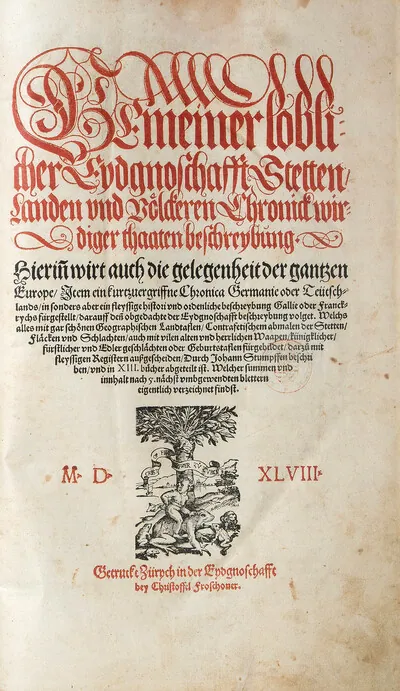 GEmeiner lobli-
cher Eydgnoschafft Stetten/
Landen vnd Völckeren Chronick wir-
diger thaaten beschreybung.
Hieriñ wirt auch die gelegenheit der gantzen
Europe/ Item ein kurtzuergriffne Chronica Germanie oder Teütsch-
lands/ in sonders aber ein fleyssige histori vnd ordenliche beschreybung Gallie oder Franck-
rychs fürgestellt/ darauff deñ obgedachte der Eydgnoschafft beschreybung volget. Welchs
alles mit gar schönen Geographischen Landtaflen/ Contrafetischem abmalen der Stetten/
Fläcken vnd Schlachten/ auch mit vilen alten vnd herrlichen Waapen/ künigklicher/
fürstlicher vnd Edler geschlächten oder Geburtstaflen fürgebildet/ darzů mit
fleyssigen Registern aufgescheiden/ Durch Johann Stumpffen beschri
ben/ vnd in XIII. bücher abgeteilt ist. Welcher summen vnd
innhalt nach 5. nächst vmbgewendten blettern
eigentlich verzeichnet findst.
M. D. XLVIII.
Getruckt Zürych in der Eydgnoschafft
bey Christoffel Froschouer.